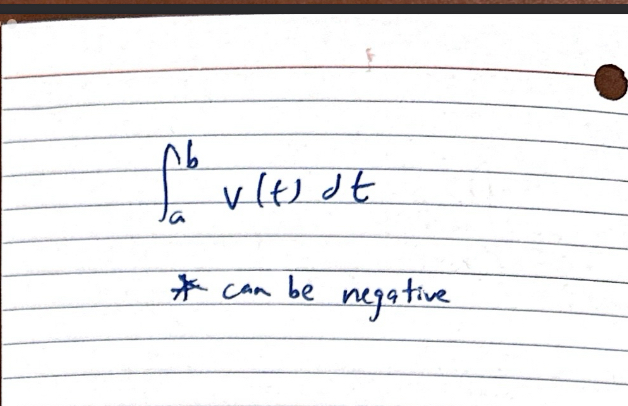 ∫_a^b v(t) dt
* can be negative